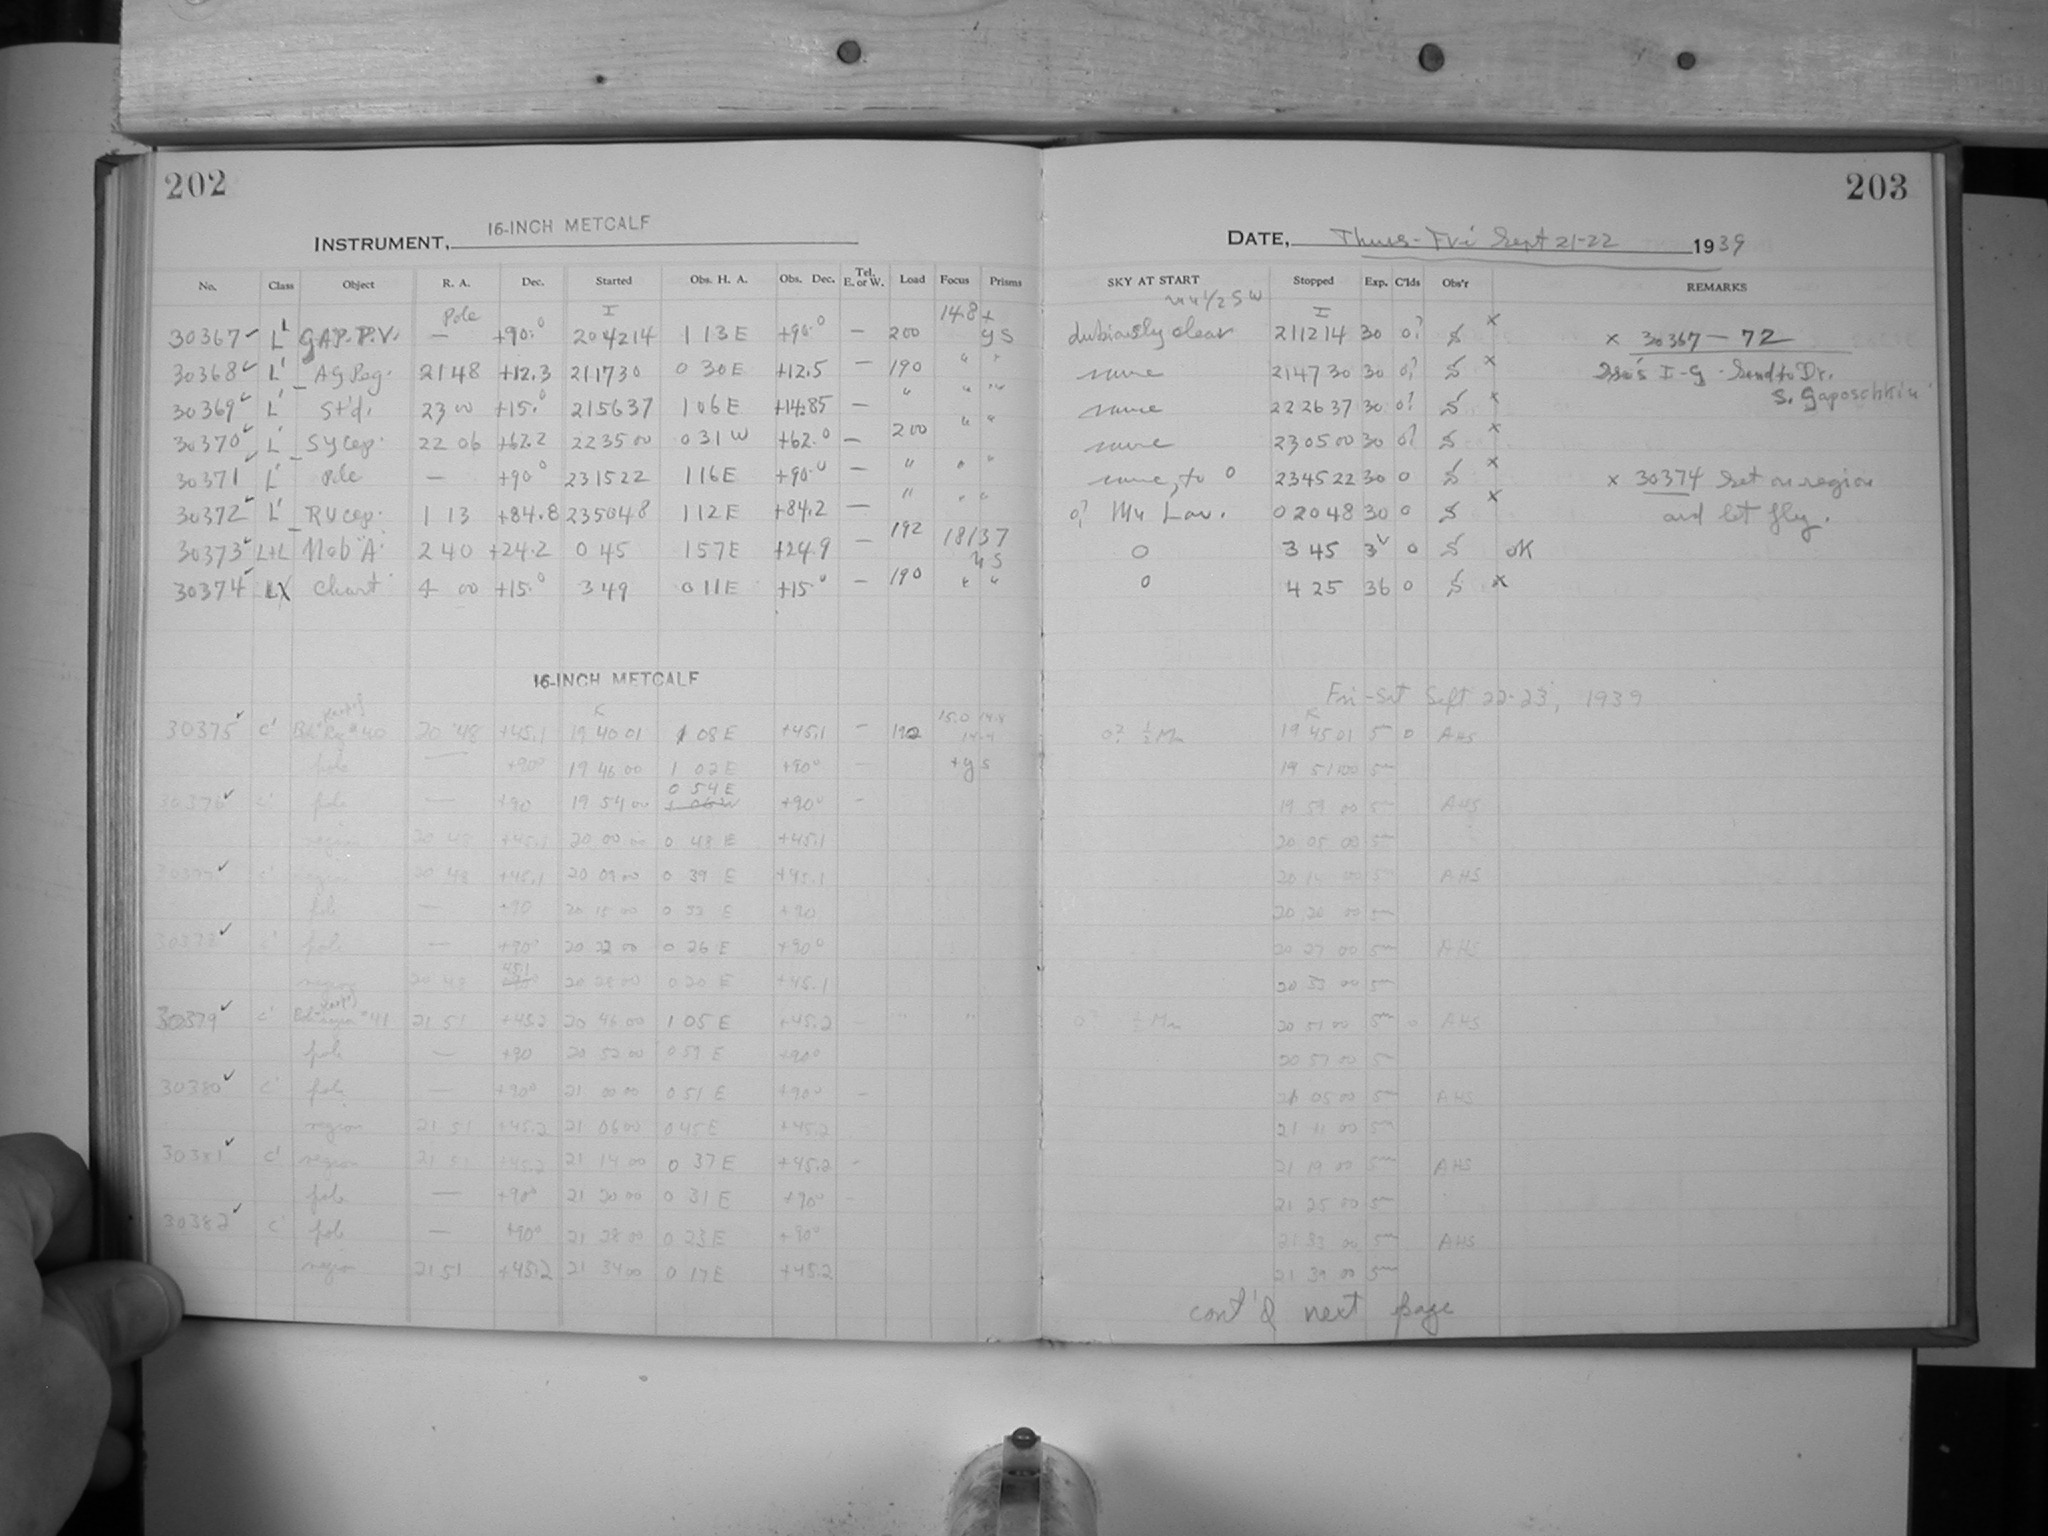 202
203
16-INCH METCALF
INSTRUMENT,
DATE, Thurs-Fri Sept 21-22 1939
No. Class Object R. A. Dec. Started Obs. H. A. Obs. Dec. Tel. E. or W. Load Focus Prisms SKY AT START Stopped Exp. C'lds Obs'r REMARKS
Pole I 14.8 + Mn 1/2 SW I
30367 L' GAP. P.V. — +90.° 20 42 14 1 13 E +90.° — 200 y s dubiously clear 21 12 14 30 0? S x x 30367 — 72
30368 L' AG Peg. 21 48 +12.3 21 17 30 0 30 E +12.5 — 190 " " same 21 47 30 30 0? S x I-G. Send to Dr.
S. Gaposchkin
30369 L' St'd. 23 00 +15.° 21 56 37 1 06 E +14.85 — " " " same 22 26 37 30 0? S x
30370 L' SY Cep. 22 06 +62.2 22 35 00 0 31 W +62.° — 200 " " same 23 05 00 30 0? S x
30371 L' Pole — +90° 23 15 22 1 16 E +90.° — " " " same, to 0 23 45 22 30 0 S x x 30374 Set on region
30372 L' RU Cep. 1 13 +84.8 23 50 48 1 12 E +84.2 — " " " 0? Mn Low. 0 20 48 30 0 S x and let fly.
30373 L+L Nob "A" 2 40 +24.2 0 45 1 57 E +24.9 — 192 18137 0 3 45 3 0 S OK
30374 LX Chart 4 00 +15.° 3 49 0 11 E +15° — 190 " " 0 4 25 36 0 S x
16-INCH METCALF
Fri-Sat Sept 22-23, 1939
K 15.0 14.8 K
30375 C' #40 20 48 +45.1 19 40 01 1 08 E +45.1 — 192 0? ½ Mn 19 45 01 5 0 AHS
pole — +90° 19 46 00 1 02 E +90° — + y s 19 51 00 5m
0 54 E
30376 C' pole — +90 19 54 00 +90° — 19 59 00 5m AHS
region 20 48 +45.1 20 00 00 0 48 E +45.1 20 05 00 5m
30377 C' region 20 48 +45.1 20 09 00 0 39 E +45.1 20 14 00 5m AHS
pole — +90 20 15 00 0 33 E +90 20 20 00 5m
30378 C' pole — +90° 20 22 00 0 26 E +90° 20 27 00 5m AHS
region 20 48 45.1 20 28 00 0 20 E +45.1 20 33 00 5m
30379 C' #41 21 51 +45.2 20 46 00 1 05 E +45.2 " " 0? ½ Mn 20 51 00 5m 0 AHS
pole — +90 20 52 00 0 59 E +90° 20 57 00 5m
30380 C' pole — +90° 21 00 00 0 51 E +90° — 21 05 00 5m AHS
region 21 51 +45.2 21 06 00 0 45 E +45.2 21 11 00 5m
30381 C' region 21 51 +45.2 21 14 00 0 37 E +45.2 — 21 19 00 5m AHS
pole — +90° 21 20 00 0 31 E +90° — 21 25 00 5m
30382 C' pole — +90° 21 28 00 0 23 E +90° 21 33 00 5m AHS
region 21 51 +45.2 21 34 00 0 17 E +45.2 21 39 00 5m
cont'd next page